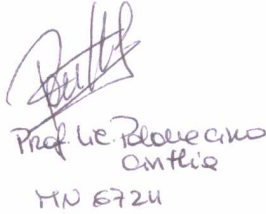 Prof. Lic. Polonecino
Cinthia
MN 6724